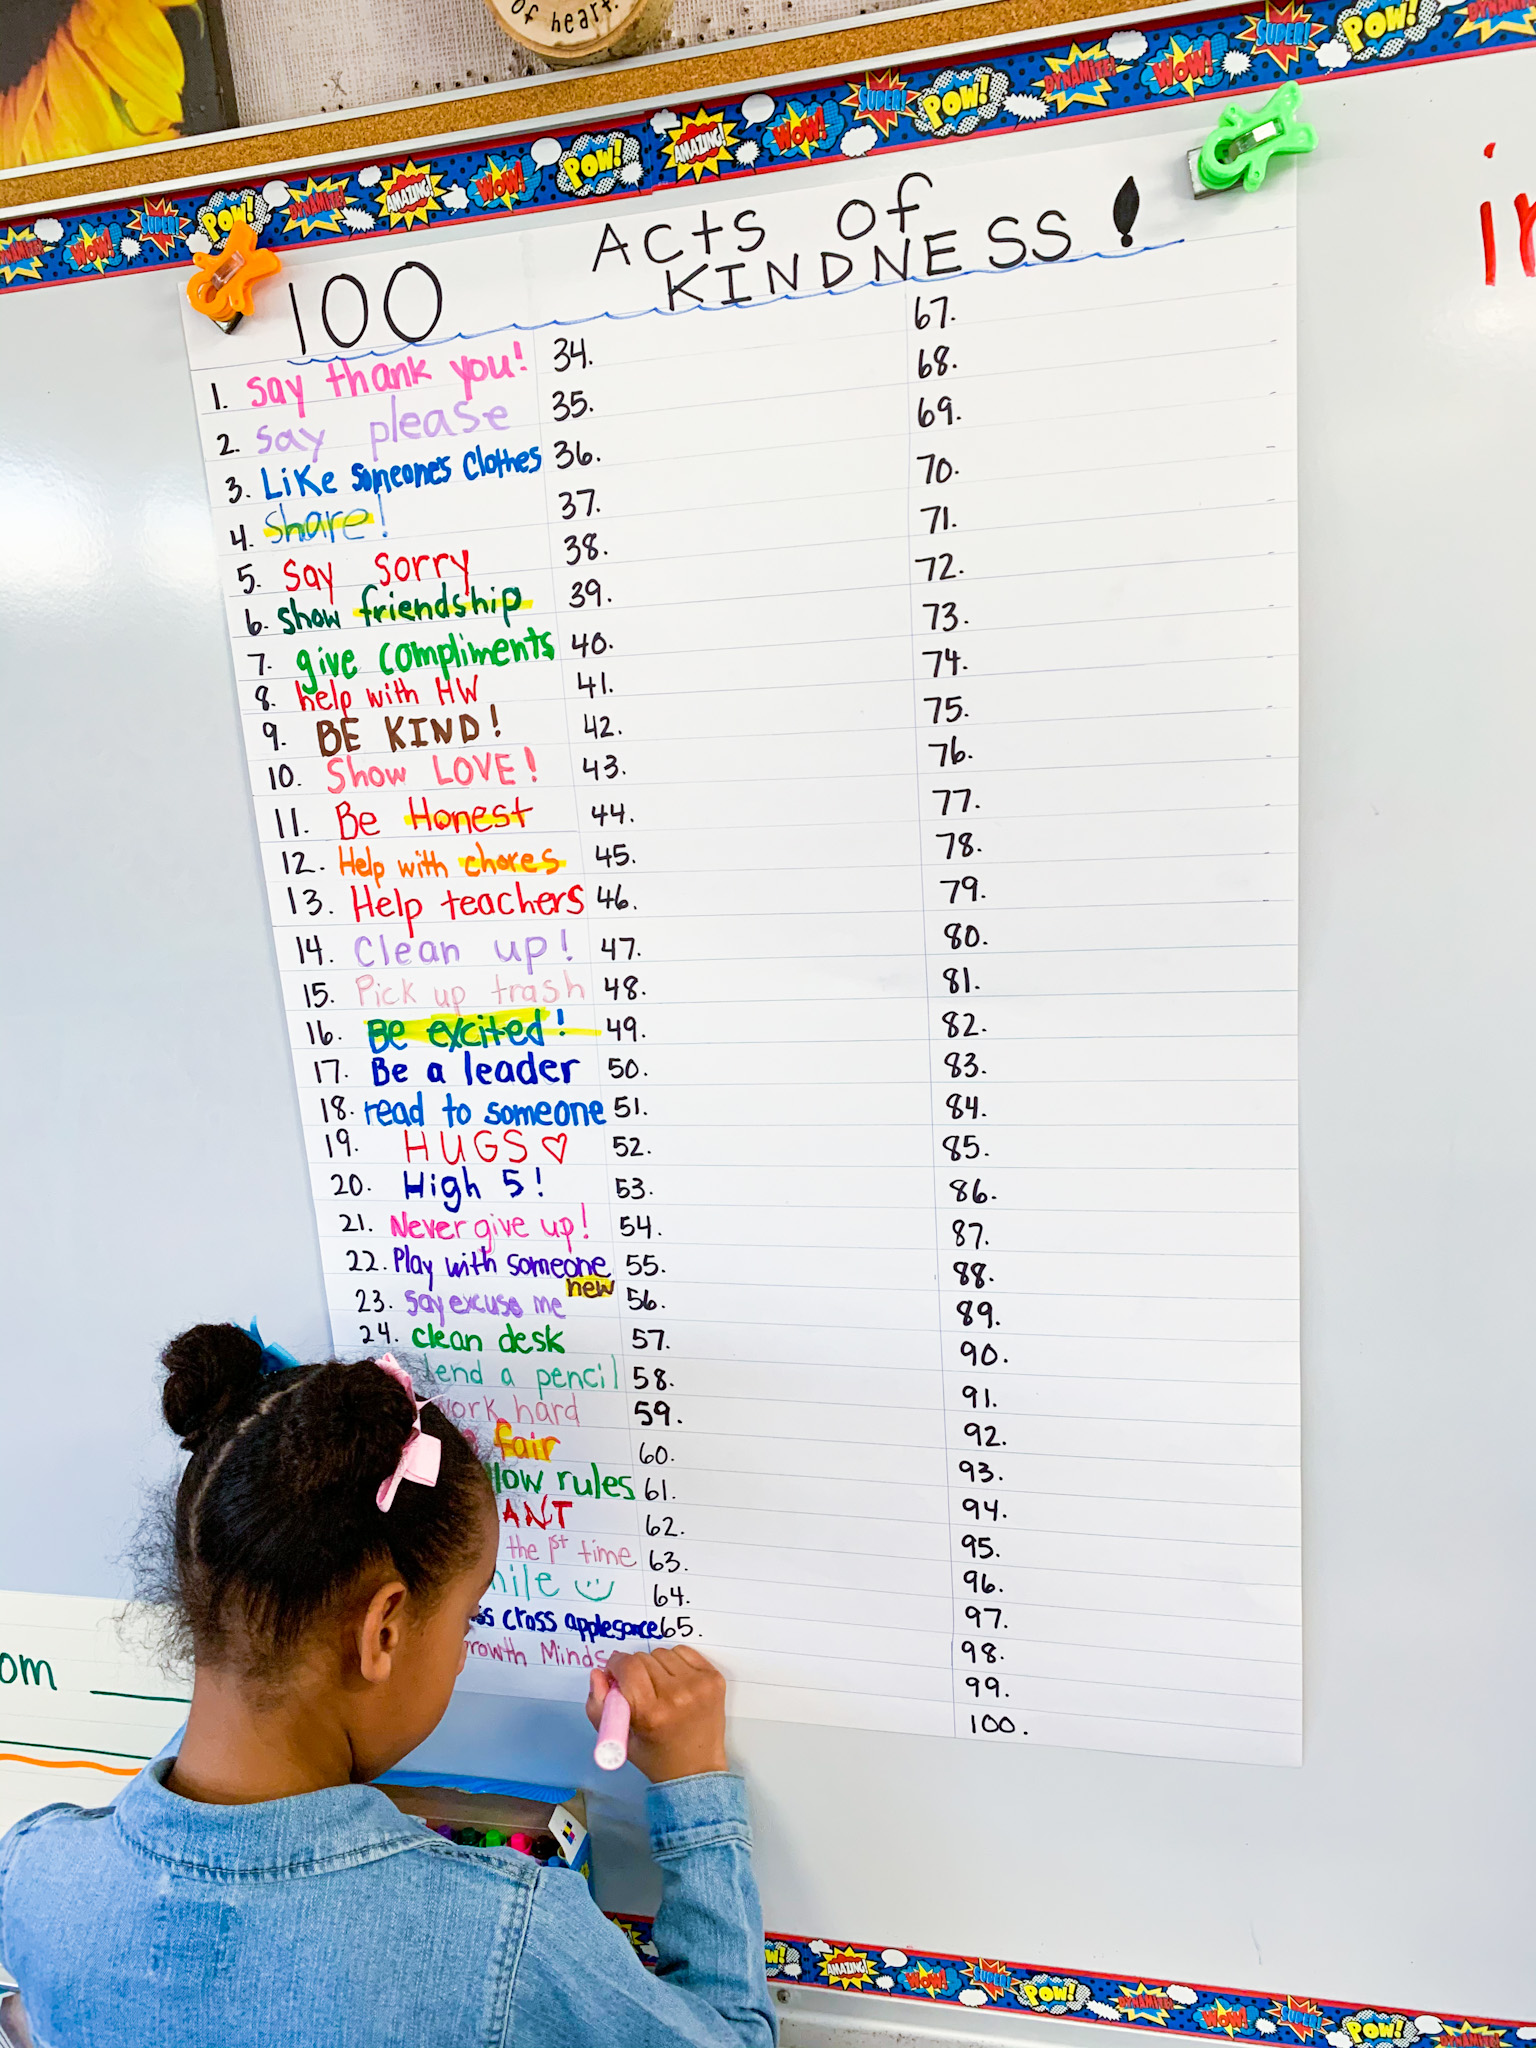 of heart.
SUPER! POW! DYNAMITE! AMAZING! WOW! POW! AMAZING! WOW! SUPER! POW! DYNAMITE! WOW! SUPER! POW! DYNAMITE!
WOW!
100 Acts of
KINDNESS!
1. Say thank you!
2. Say please
3. Like someone's clothes
4. share!
5. Say sorry
6. show friendship
7. give compliments
8. help with HW
9. BE KIND!
10. Show LOVE!
11. Be Honest
12. Help with chores
13. Help teachers
14. Clean up!
15. Pick up trash
16. Be excited!
17. Be a leader
18. read to someone
19. HUGS
20. High 5!
21. Never give up!
22. Play with someone
new
23. Say excuse me
24. clean desk
lend a pencil
work hard
fair
low rules
ANT
the 1st time
ile
ss cross applesauce
rowth Minds
34.
35.
36.
37.
38.
39.
40.
41.
42.
43.
44.
45.
46.
47.
48.
49.
50.
51.
52.
53.
54.
55.
56.
57.
58.
59.
60.
61.
62.
63.
64.
65.
67.
68.
69.
70.
71.
72.
73.
74.
75.
76.
77.
78.
79.
80.
81.
82.
83.
84.
85.
86.
87.
88.
89.
90.
91.
92.
93.
94.
95.
96.
97.
98.
99.
100.
om
AMAZING! WOW! SUPER! POW! DYNAMITE! WOW! SUPER! POW! DYNAMITE!